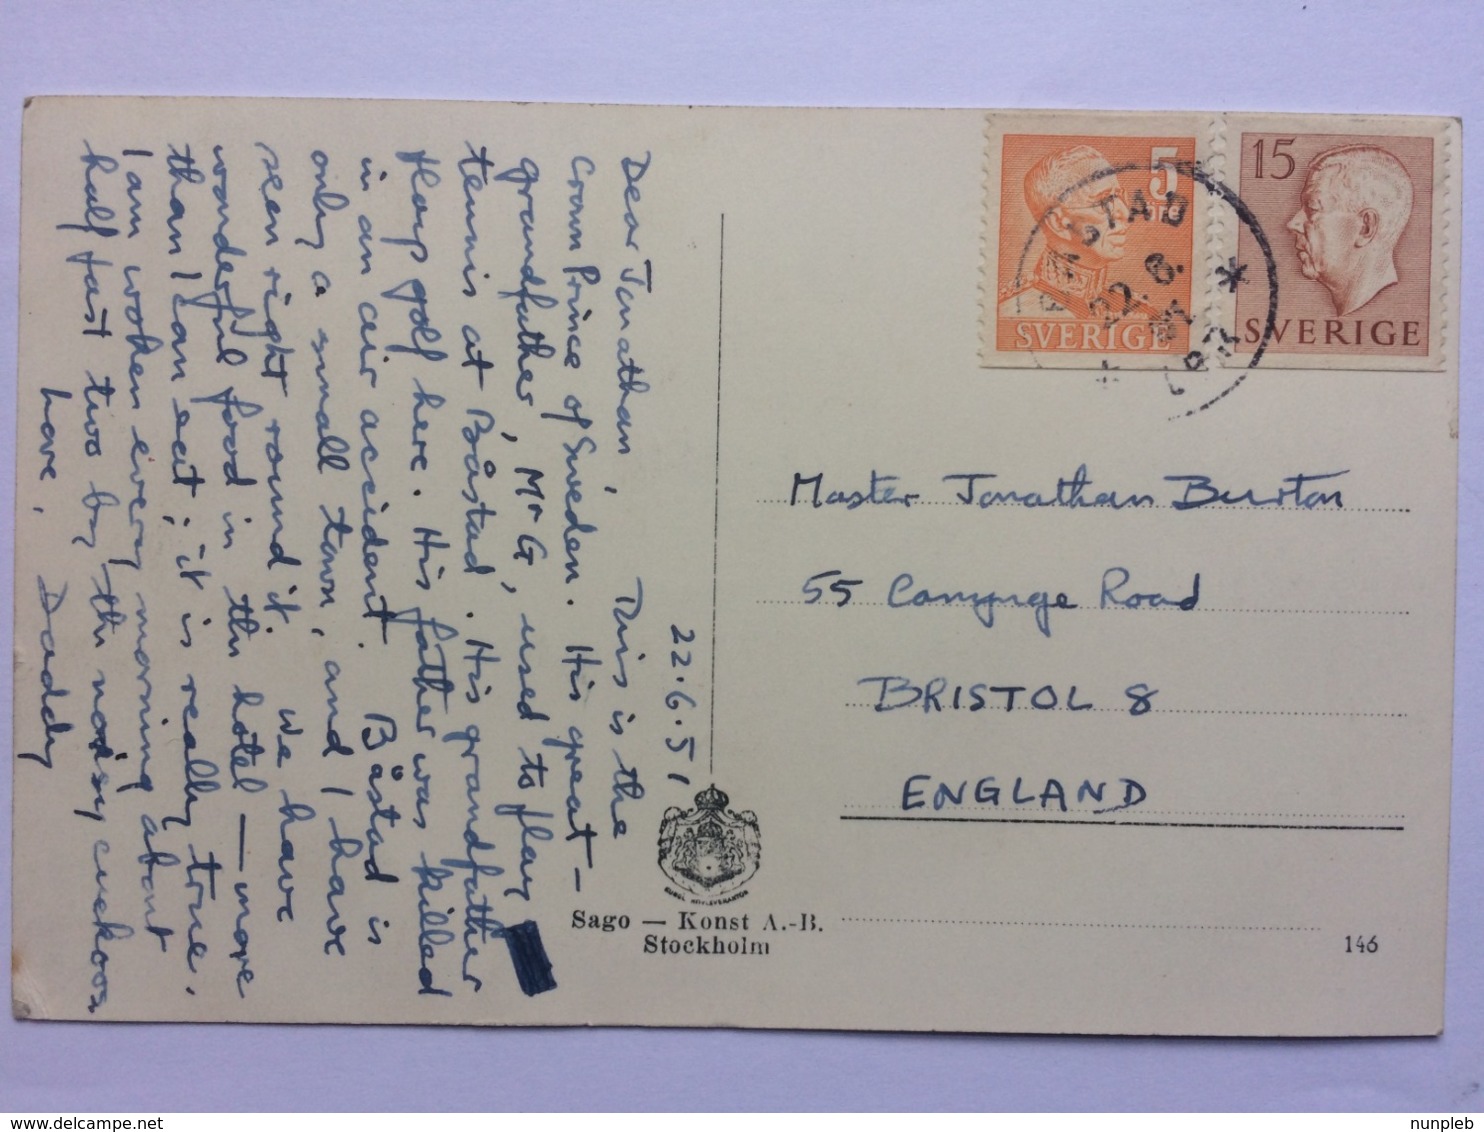 22.6.51
Dear Jonathan,
This is the
Crown Prince of Sweden. His great-
grandfather, Mr G, used to play
tennis at Båstad. His grandfather
plays golf here. His father was killed
in an air accident. Båstad is
only a small town, and I have
seen right round it. We have
wonderful food in the hotel — more
than I can eat; it is really true.
I am woken every morning about
half past two by the noisy cuckoos.
Love,
Daddy
5
SVERIGE
15
SVERIGE
BÅSTAD
22.6.
51
Master Jonathan Burton
55 Canynge Road
BRISTOL 8
ENGLAND
Sago — Konst A.-B.
Stockholm
146
nunpleb